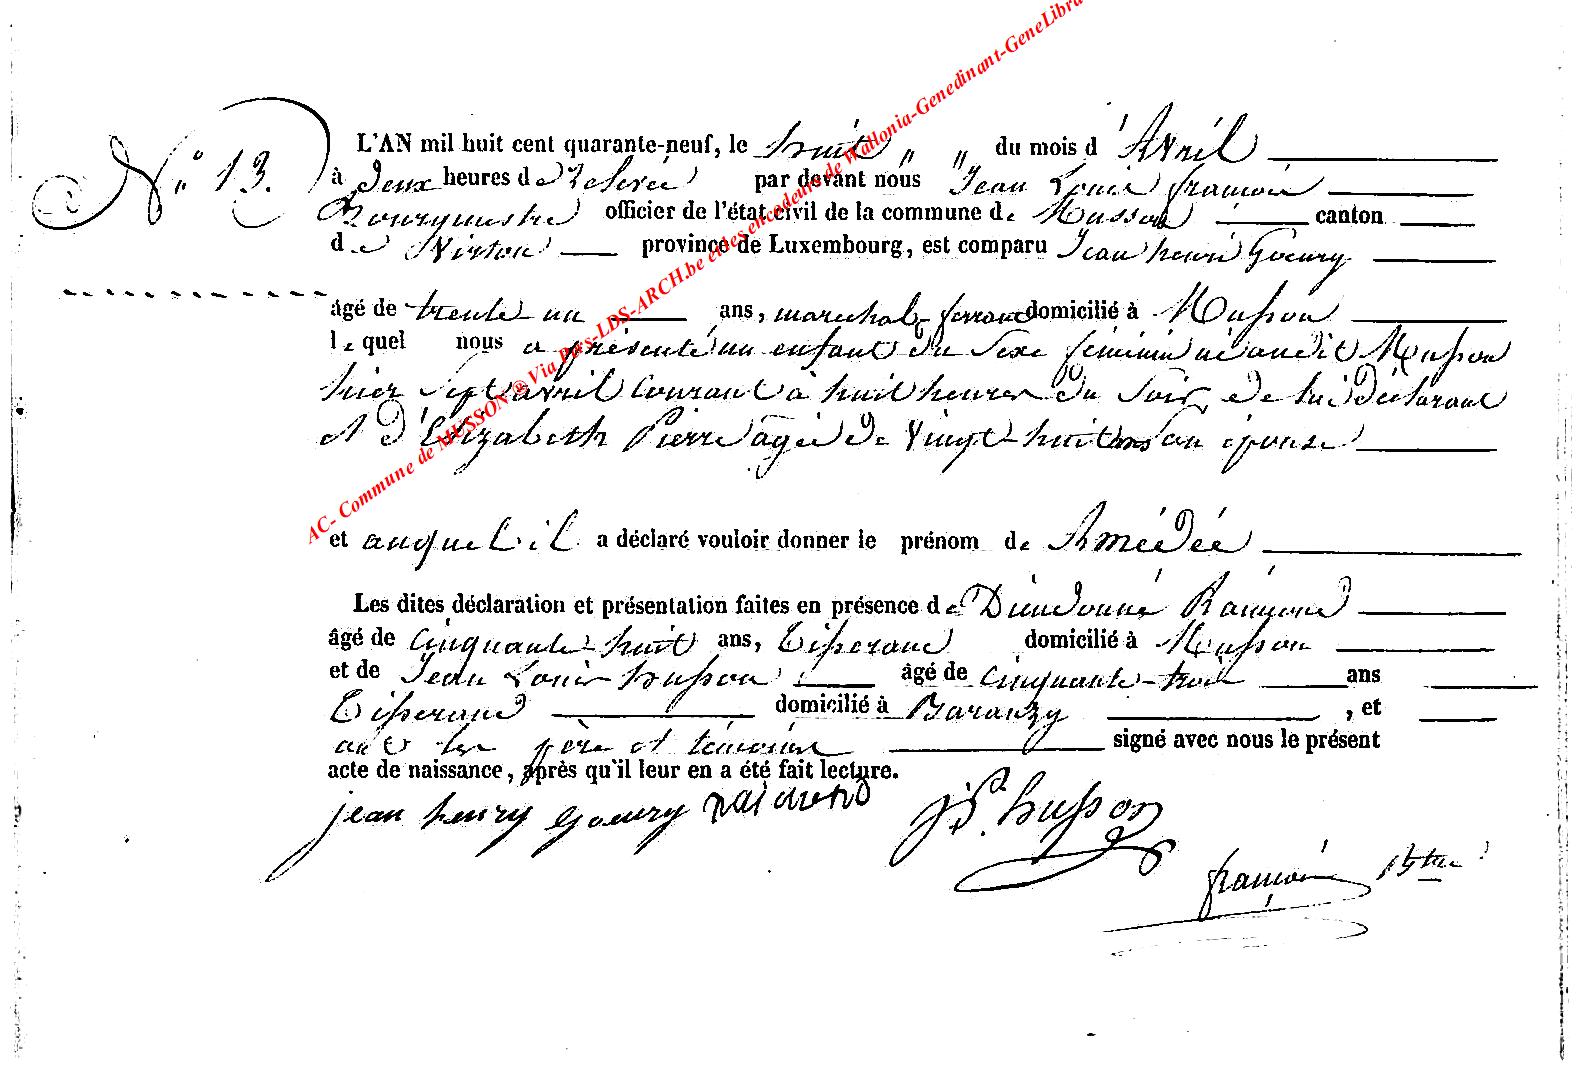 AC- Commune de MUSSON @ Via Pros-LDS-ARCH.be et les encodeurs de Wallonia-Genedinant-GeneLibra
N° 13.
L'AN mil huit cent quarante-neuf, le huit „ „ du mois d'Avril
à deux heures de relevée par devant nous Jean Louis françois
Bourgmestre officier de l'état civil de la commune de Musson canton
de Virton province de Luxembourg, est comparu Jean henri Goeury
âgé de trente un ans, marechal-ferrant domicilié à Musson
lequel nous a présenté un enfant du sexe féminin né audit Musson
hier sept avril courant à huit heures du soir, de lui déclarant
et d'Elizabeth Pierre agée de vingt-huit ans son épouse
et auquel il a déclaré vouloir donner le prénom de Amédée
Les dites déclaration et présentation faites en présence de Dieudonné
âgé de cinquante-huit ans, tisserand domicilié à Musson
et de Jean Louis husson âgé de cinquante-trois ans
tisserand domicilié à Baranzy , et
ont les père et témoins signé avec nous le présent
acte de naissance, après qu'il leur en a été fait lecture.
jean henry Goeury husson
françois